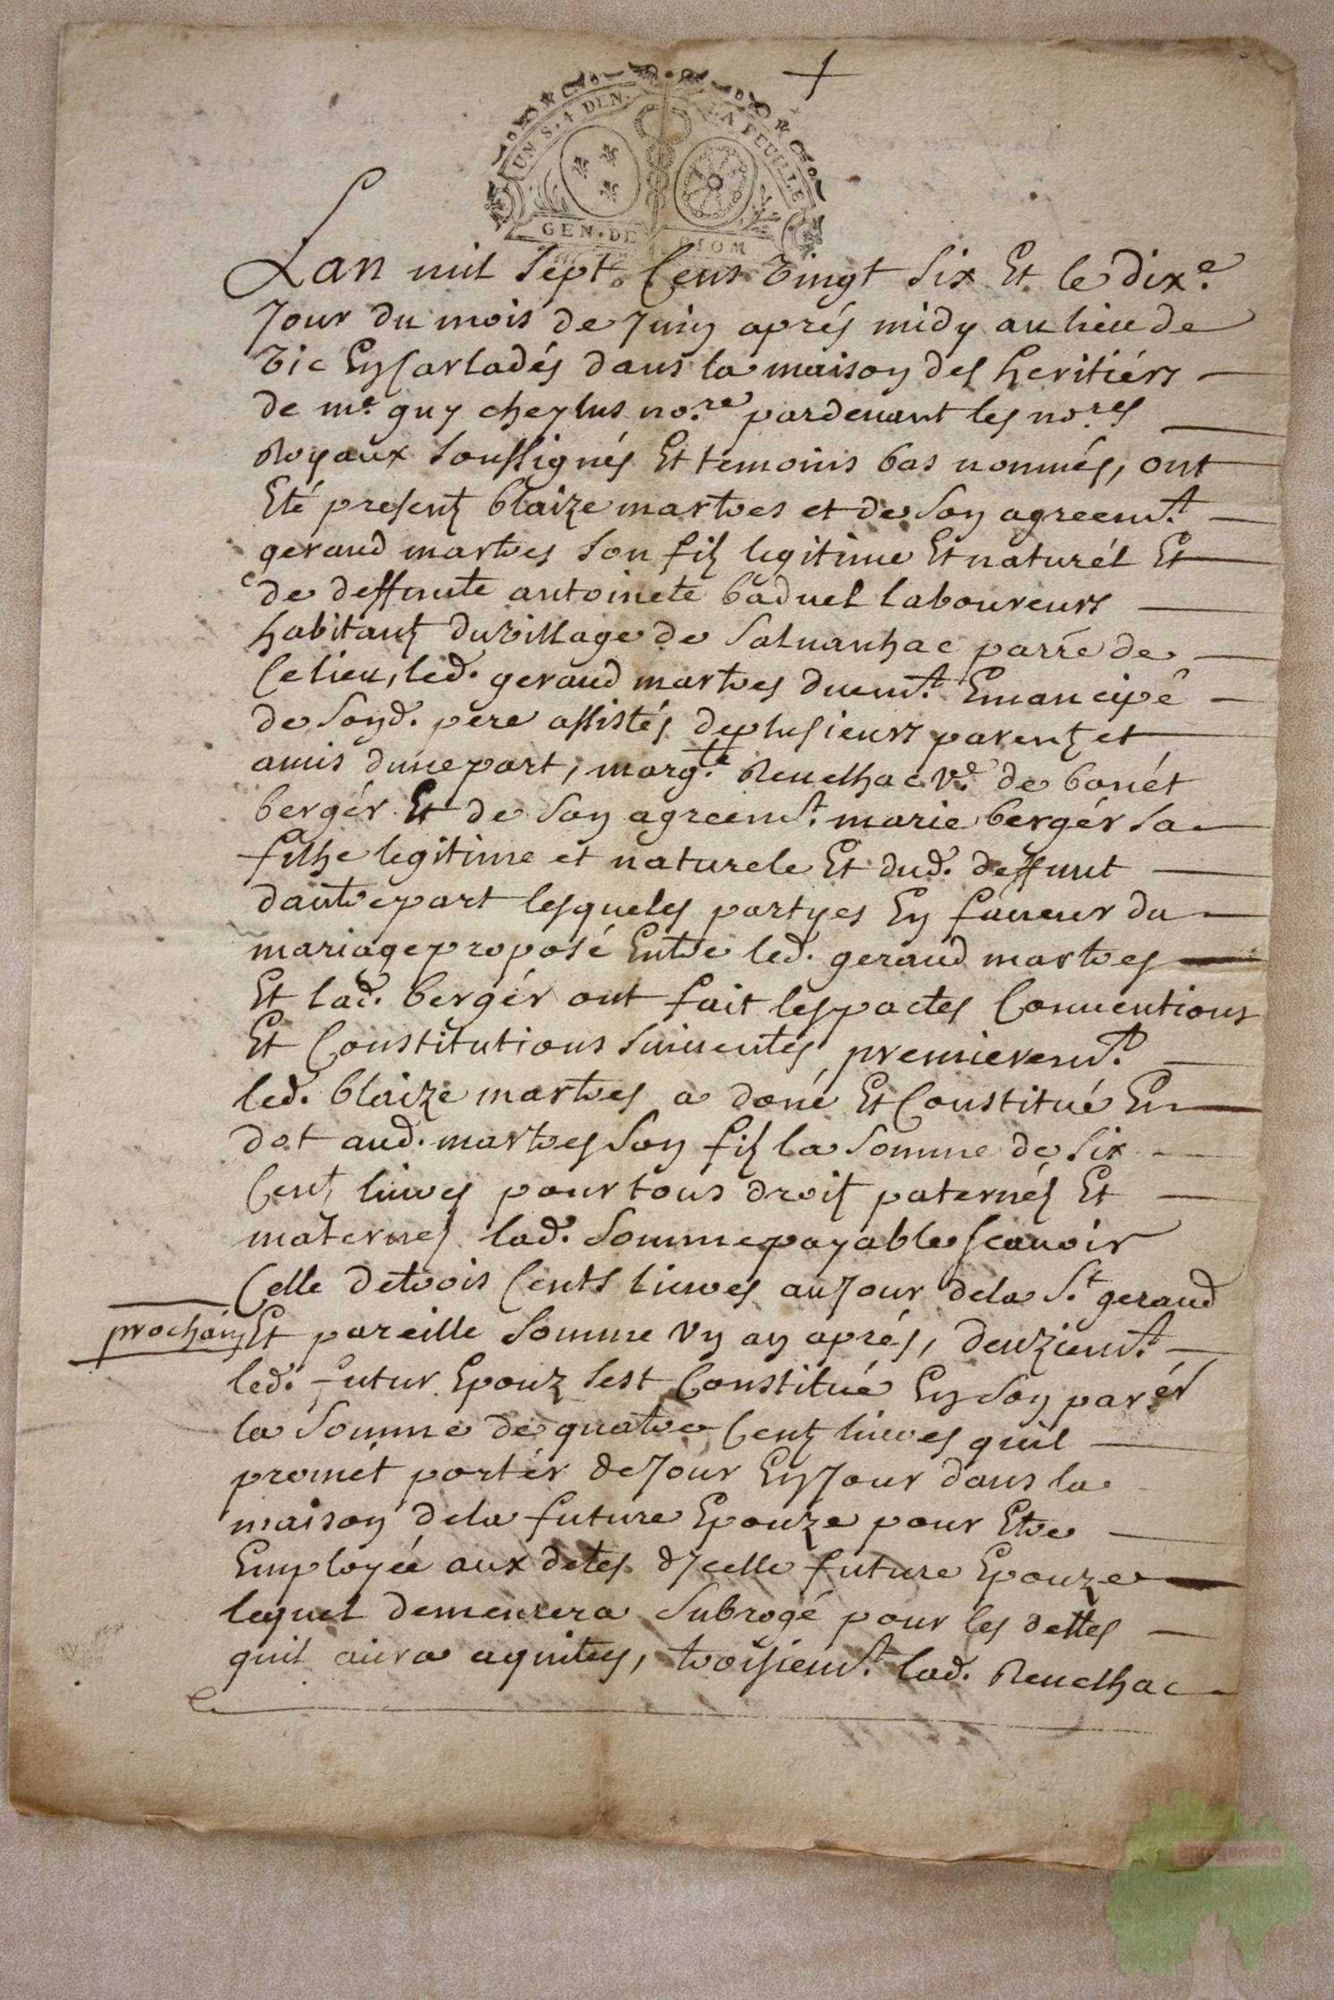 UN S. 4 DEN. LA FEUILLE
GEN. DE RIOM
Lan mil sept Cens vingt six Et le dix.e
Jour du mois de Juin aprés midy au lieu de
vic En Carladés dans la maison des heritiérs
de me. guy cheylus no.re pardevant les no.res
Royaux soussignés Et temoins bas nommés, ont
Eté presentz blaize martres et de son agreem.t
geraud martres son filz legitime Et naturél Et
de deffunte antoinete baduel laboureurs
habitantz du village de Salvanhac parre de
Ce lieu, led. geraud martres duem.t Emancipé
de Sond. pere assistés de plusieurs parentz et
amis dune part, marg.te Reuelhac ve. de bonét
bergér Et de son agreem.t marie bergér sa
filhe legitime et naturele Et dud. deffunt
dautre part lesqueles partyes En faueur du
mariage proposé Entre led. geraud martres
Et lad. bergér ont fait les pactes Conuentions
Et Constitutions suiuentes, premierem.t
led. blaize martres a doné Et Constitué En
dot aud. martres son filz la somme de six
Cent, liures pour tous droitz paternés Et
maternes lad. somme payable scauoir
Celle de trois Cents liures au Jour de la S.t geraud
prochain Et pareille somme vn an aprés, deuziem.t
led. futur Epouz sest Constitué En son par.er
la somme de quatre Centz liures quil
promét portér de Jour En Jour dans la
maison de la future Epouze pour Etre
Employée aux detes dJcelle future Epouze
lequel demeurera subrogé pour les dettes
quil aura aquitées, troisiem.t lad. Reuelhac